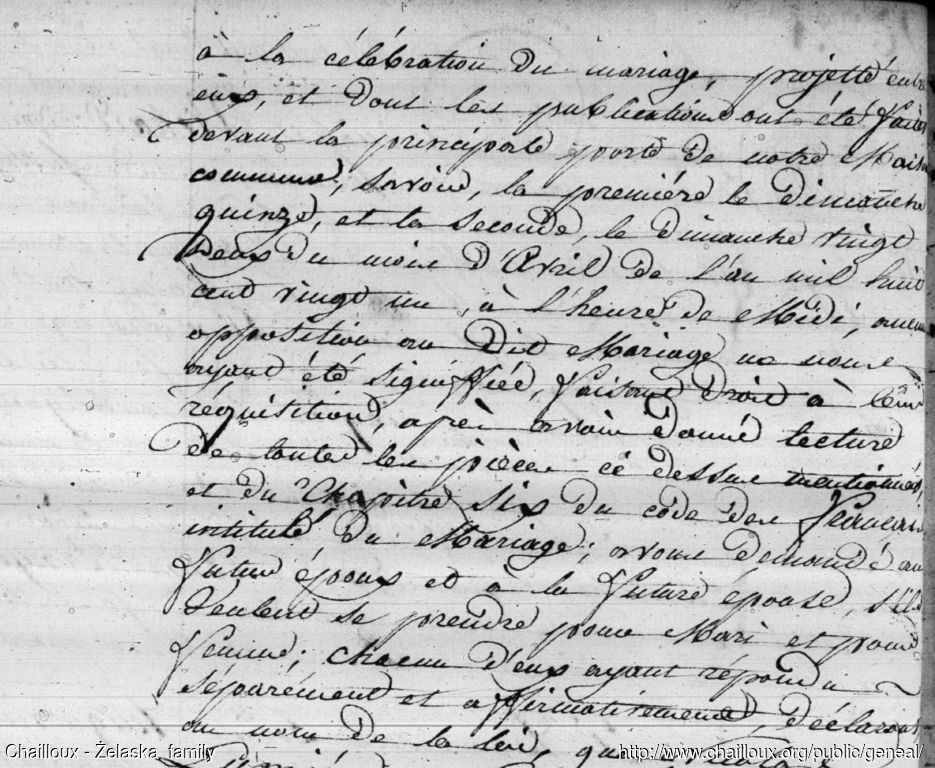 à la célébration du mariage, projetté entre
eux, et dont les publications ont été faites
devant la principale porte de notre Maison
commune, savoir, la première le dimanche
quinze, et la seconde, le dimanche vingt
deux du mois d'Avril de l'an mil huit
cent vingt un, à l'heure de Midi, aucune
opposition au Dit Mariage ne nous
ayant été signiffiée, faisant droit à leur
réquisition, après avoir donné lecture
de toutes les pièces ci dessus mentionnées,
et du Chapitre six du code des français
intitulé du Mariage, avons demandé au
futur époux et à la future epouse, s'ils
veulent se prendre pour Mari et pour
femme; chacun d'eux ayant répondu
séparément et affirmativement, déclarons
au nom de la loi, que
Chailloux - Żelaska family
http://www.chailloux.org/public/geneal/